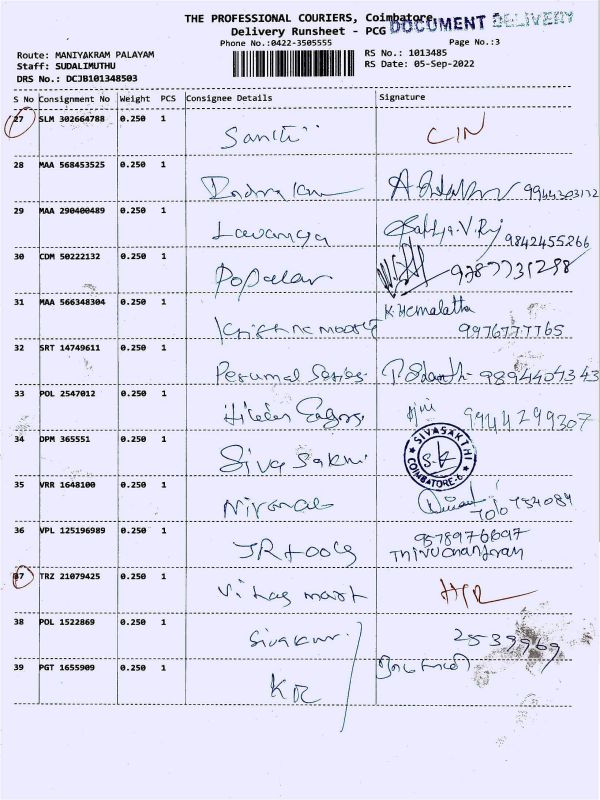 THE PROFESSIONAL COURIERS, Coimbatore
DOCUMENT DELIVERY
Delivery Runsheet - PCG
Phone No.:0422-3505555
Page No.:3
Route: MANIYAKRAM PALAYAM
RS No.: 1013485
Staff: SUDALIMUTHU
RS Date: 05-Sep-2022
DRS No.: DCJB101348503
S No Consignment No Weight PCS Consignee Details Signature
27 SLM 302664788 0.250 1 CIN
28 MAA 568453525 0.250 1
29 MAA 290400489 0.250 1 Lavanya 9842455266
30 CDM 50222132 0.250 1 Popular 9787731298
31 MAA 566348304 0.250 1 K. Hemalatha
9976777765
32 SRT 14749611 0.250 1 Perumal
33 POL 2547012 0.250 1 9944299307
34 DPM 365551 0.250 1 Siva Sakthi SIVASAKTHI S.K COIMBATORE-6
35 VRR 1648100 0.250 1 Nirmal
36 VPL 125196989 0.250 1 JR tools
37 TRZ 21079425 0.250 1 mart
38 POL 1522869 0.250 1 Sivakumar 2539969
39 PGT 1655909 0.250 1 KR